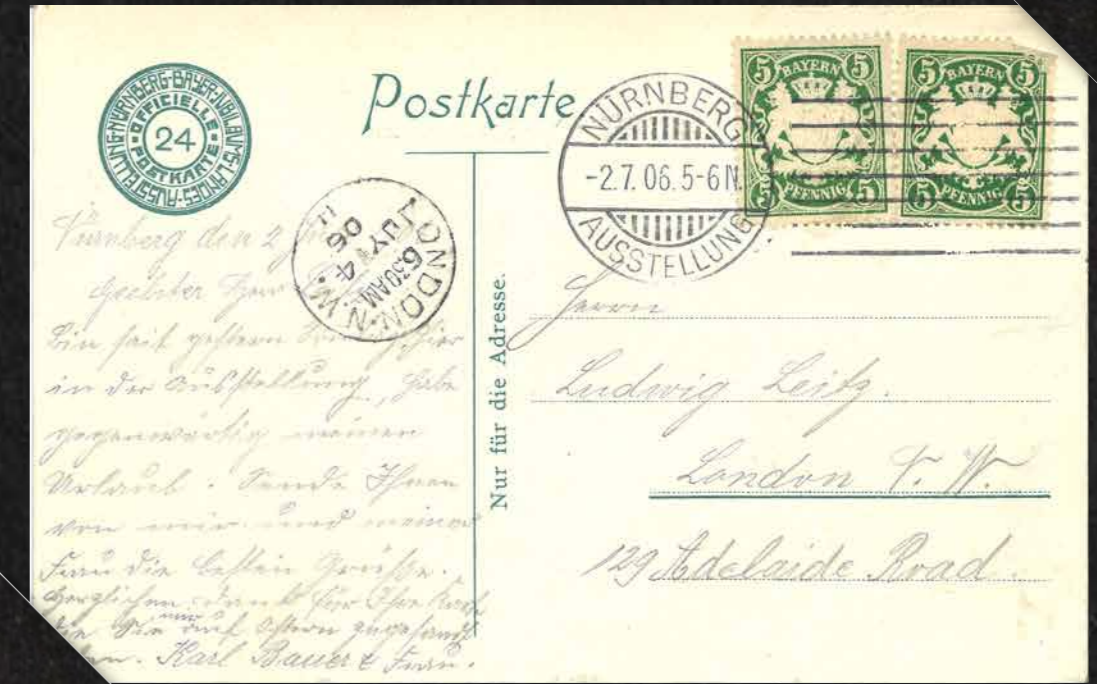 NÜRNBERG-BAYER-JUBILÄUMS-LANDES-AUSSTELLUNG
OFFICIELLE
24
POSTKARTE
Postkarte
NÜRNBERG
-2.7.06.5-6N.
AUSSTELLUNG
5 BAYERN 5
5 PFENNIG 5
5 BAYERN 5
5 PFENNIG 5
LONDON.N.W.
6.30AM
JY 4
06
11
Nürnberg den 2
Geehrter Herr
Bin seit gestern hier
in der Ausstellung, habe
gegenwärtig meinen
Urlaub. Sende Ihnen
von mir und meiner
Frau die besten Grüße.
Herzlichen Dank für Ihre Karte
die Sie uns auf Ostern zugesandt
Karl Bauer & Frau.
Nur für die Adresse.
Herrn
Ludwig Leitz.
London N. W.
129 Adelaide Road.